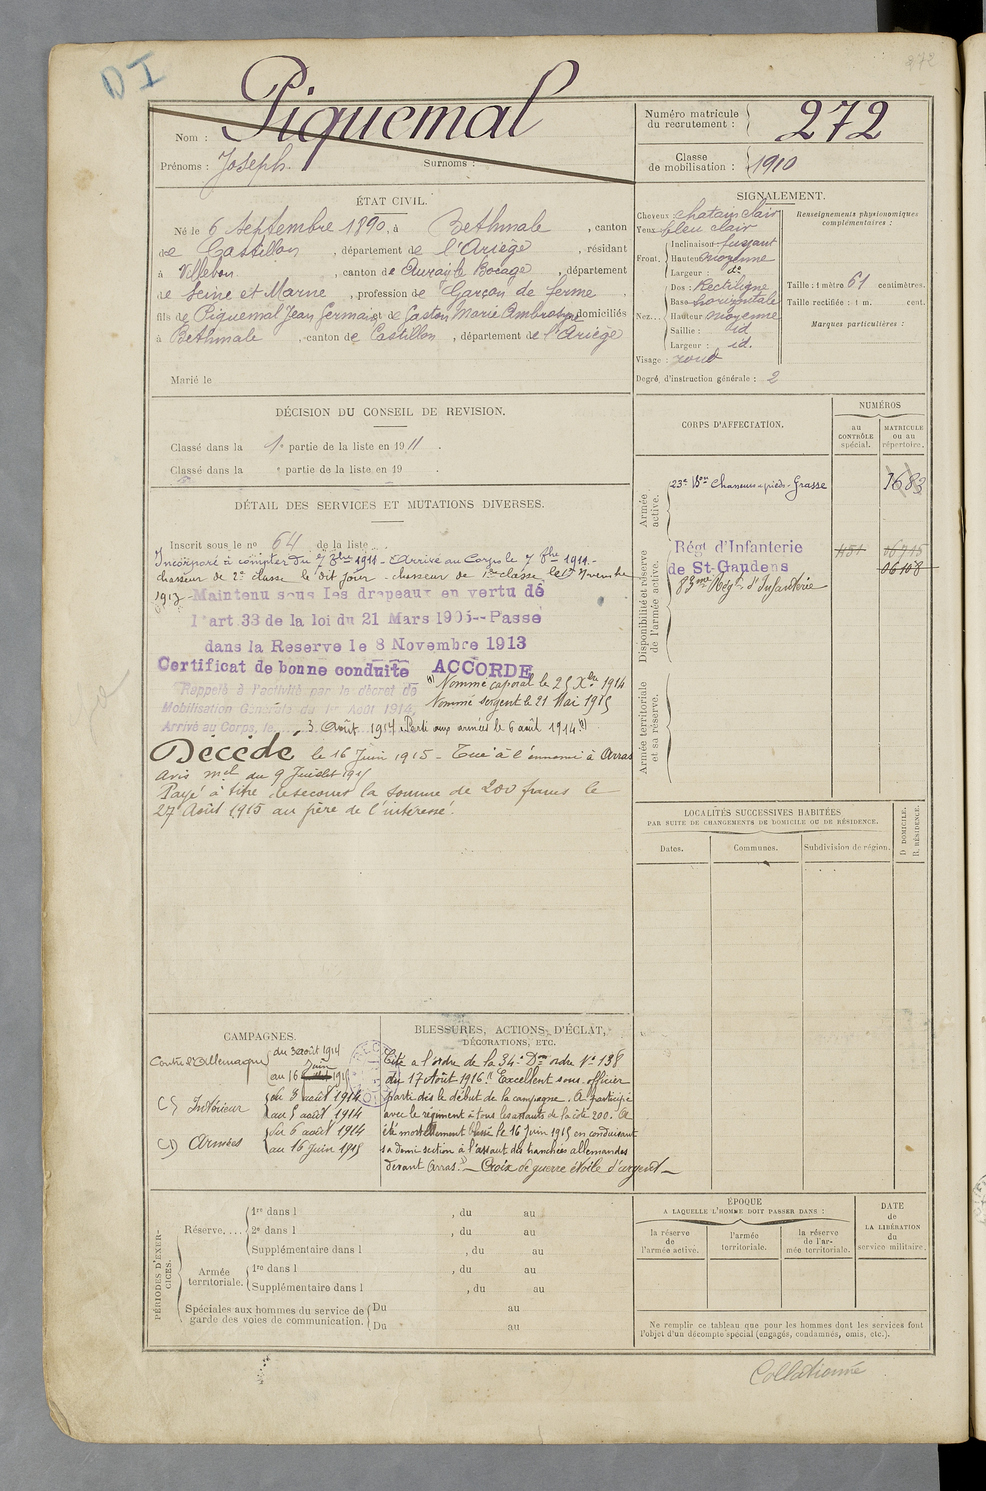 272
DI
Piquemal
Nom :
Prénoms : Joseph. Surnoms :
Numéro matricule du recrutement : 272
Classe de mobilisation : 1910
ÉTAT CIVIL.
Né le 6 septembre 1890, à Bethmale, canton
de Castillon, département de l'Ariège, résidant
à Villebon, canton de le Bocage, département
de Seine et Marne, profession de Garçon de ferme
fils de Piquemal Jean Germain et de Caston Marie Ambrosine domiciliés
à Bethmale, canton de Castillon, département de l'Ariège
Marié le
SIGNALEMENT.
Cheveux chatain clair
Yeux bleu clair
Front. Inclinaison fuyant
Hauteur moyenne
Largeur : do
Nez... Dos : Rectiligne
Base horizontale
Hauteur moyenne
Saillie : id
Largeur : id.
Visage : rond
Degré d'instruction générale : 2
Renseignements physionomiques
complémentaires :
Taille : 1 mètre 61 centimètres.
Taille rectifiée : 1 m. cent.
Marques particulières :
DÉCISION DU CONSEIL DE REVISION.
Classé dans la 1e partie de la liste en 1911.
Classé dans la e partie de la liste en 19 .
CORPS D'AFFECTATION.
NUMÉROS
au CONTRÔLE spécial.
MATRICULE ou au répertoire.
Armée active.
23e Bon Chasseurs à pieds - Grasse 1683
Disponibilité et réserve de l'armée active.
Régt d'Infanterie
de St-Gaudens
83me Régt d'Infanterie
06108
Armée territoriale et sa réserve.
DÉTAIL DES SERVICES ET MUTATIONS DIVERSES.
Inscrit sous le no 64 de la liste
Incorporé à compter du 7 8bre 1911 - Arrivé au Corps le 7 8bre 1911 -
chasseur de 2e classe le dit jour - chasseur de 1re classe le 1er Novembre
1912 - Maintenu sous les drapeaux en vertu de
l'art. 33 de la loi du 21 Mars 1905--Passé
dans la Reserve le 8 Novembre 1913
Certificat de bonne conduite ACCORDE
(1) Nommé caporal le 25 Xbre 1914
Nommé sergent le 21 Mai 1915
Rappelé à l'activité par le décret de
Mobilisation Générale du 1er Août 1914.
Arrivé au Corps, le 3 Août 1914 Parti aux armées le 6 août 1914 (1)
Décédé le 16 Juin 1915 - Tué à l'ennemi à Arras
Avis mel du 9 Juillet 1915
Payé à titre de secours la somme de 200 francs le
27 Août 1915 au père de l'intéressé.
LOCALITÉS SUCCESSIVES HABITÉES
PAR SUITE DE CHANGEMENTS DE DOMICILE OU DE RÉSIDENCE.
Dates.
Communes.
Subdivision de région.
D. DOMICILE.
R. RÉSIDENCE.
CAMPAGNES.
Contre l'Allemagne du 3 août 1914
au 16 Juin 1915
CS Intérieur du 3 août 1914
au 5 août 1914
CD Armées du 6 août 1914
au 16 Juin 1915
BLESSURES, ACTIONS D'ÉCLAT,
DÉCORATIONS, ETC.
Cité a l'ordre de la 34e Don ordre No 138
du 17 Août 1916 "Excellent sous-officier
parti dès le début de la campagne. A participé
avec le régiment à tous les assauts de la côte 200. A
été mortellement blessé le 16 Juin 1915 en conduisant
sa demi section à l'assaut des tranchées allemandes
devant Arras." - Croix de guerre étoile d'argent -
PÉRIODES D'EXERCICES.
Réserve.... 1re dans l , du au
2e dans l , du au
Supplémentaire dans l , du au
Armée territoriale. 1re dans l , du au
Supplémentaire dans l , du au
Spéciales aux hommes du service de garde des voies de communication. Du au
Du au
ÉPOQUE
A LAQUELLE L'HOMME DOIT PASSER DANS :
la réserve de l'armée active.
l'armée territoriale.
la réserve de l'armée territoriale.
DATE de LA LIBÉRATION du service militaire.
Ne remplir ce tableau que pour les hommes dont les services font
l'objet d'un décompte spécial (engagés, condamnés, omis, etc.).
Collationné